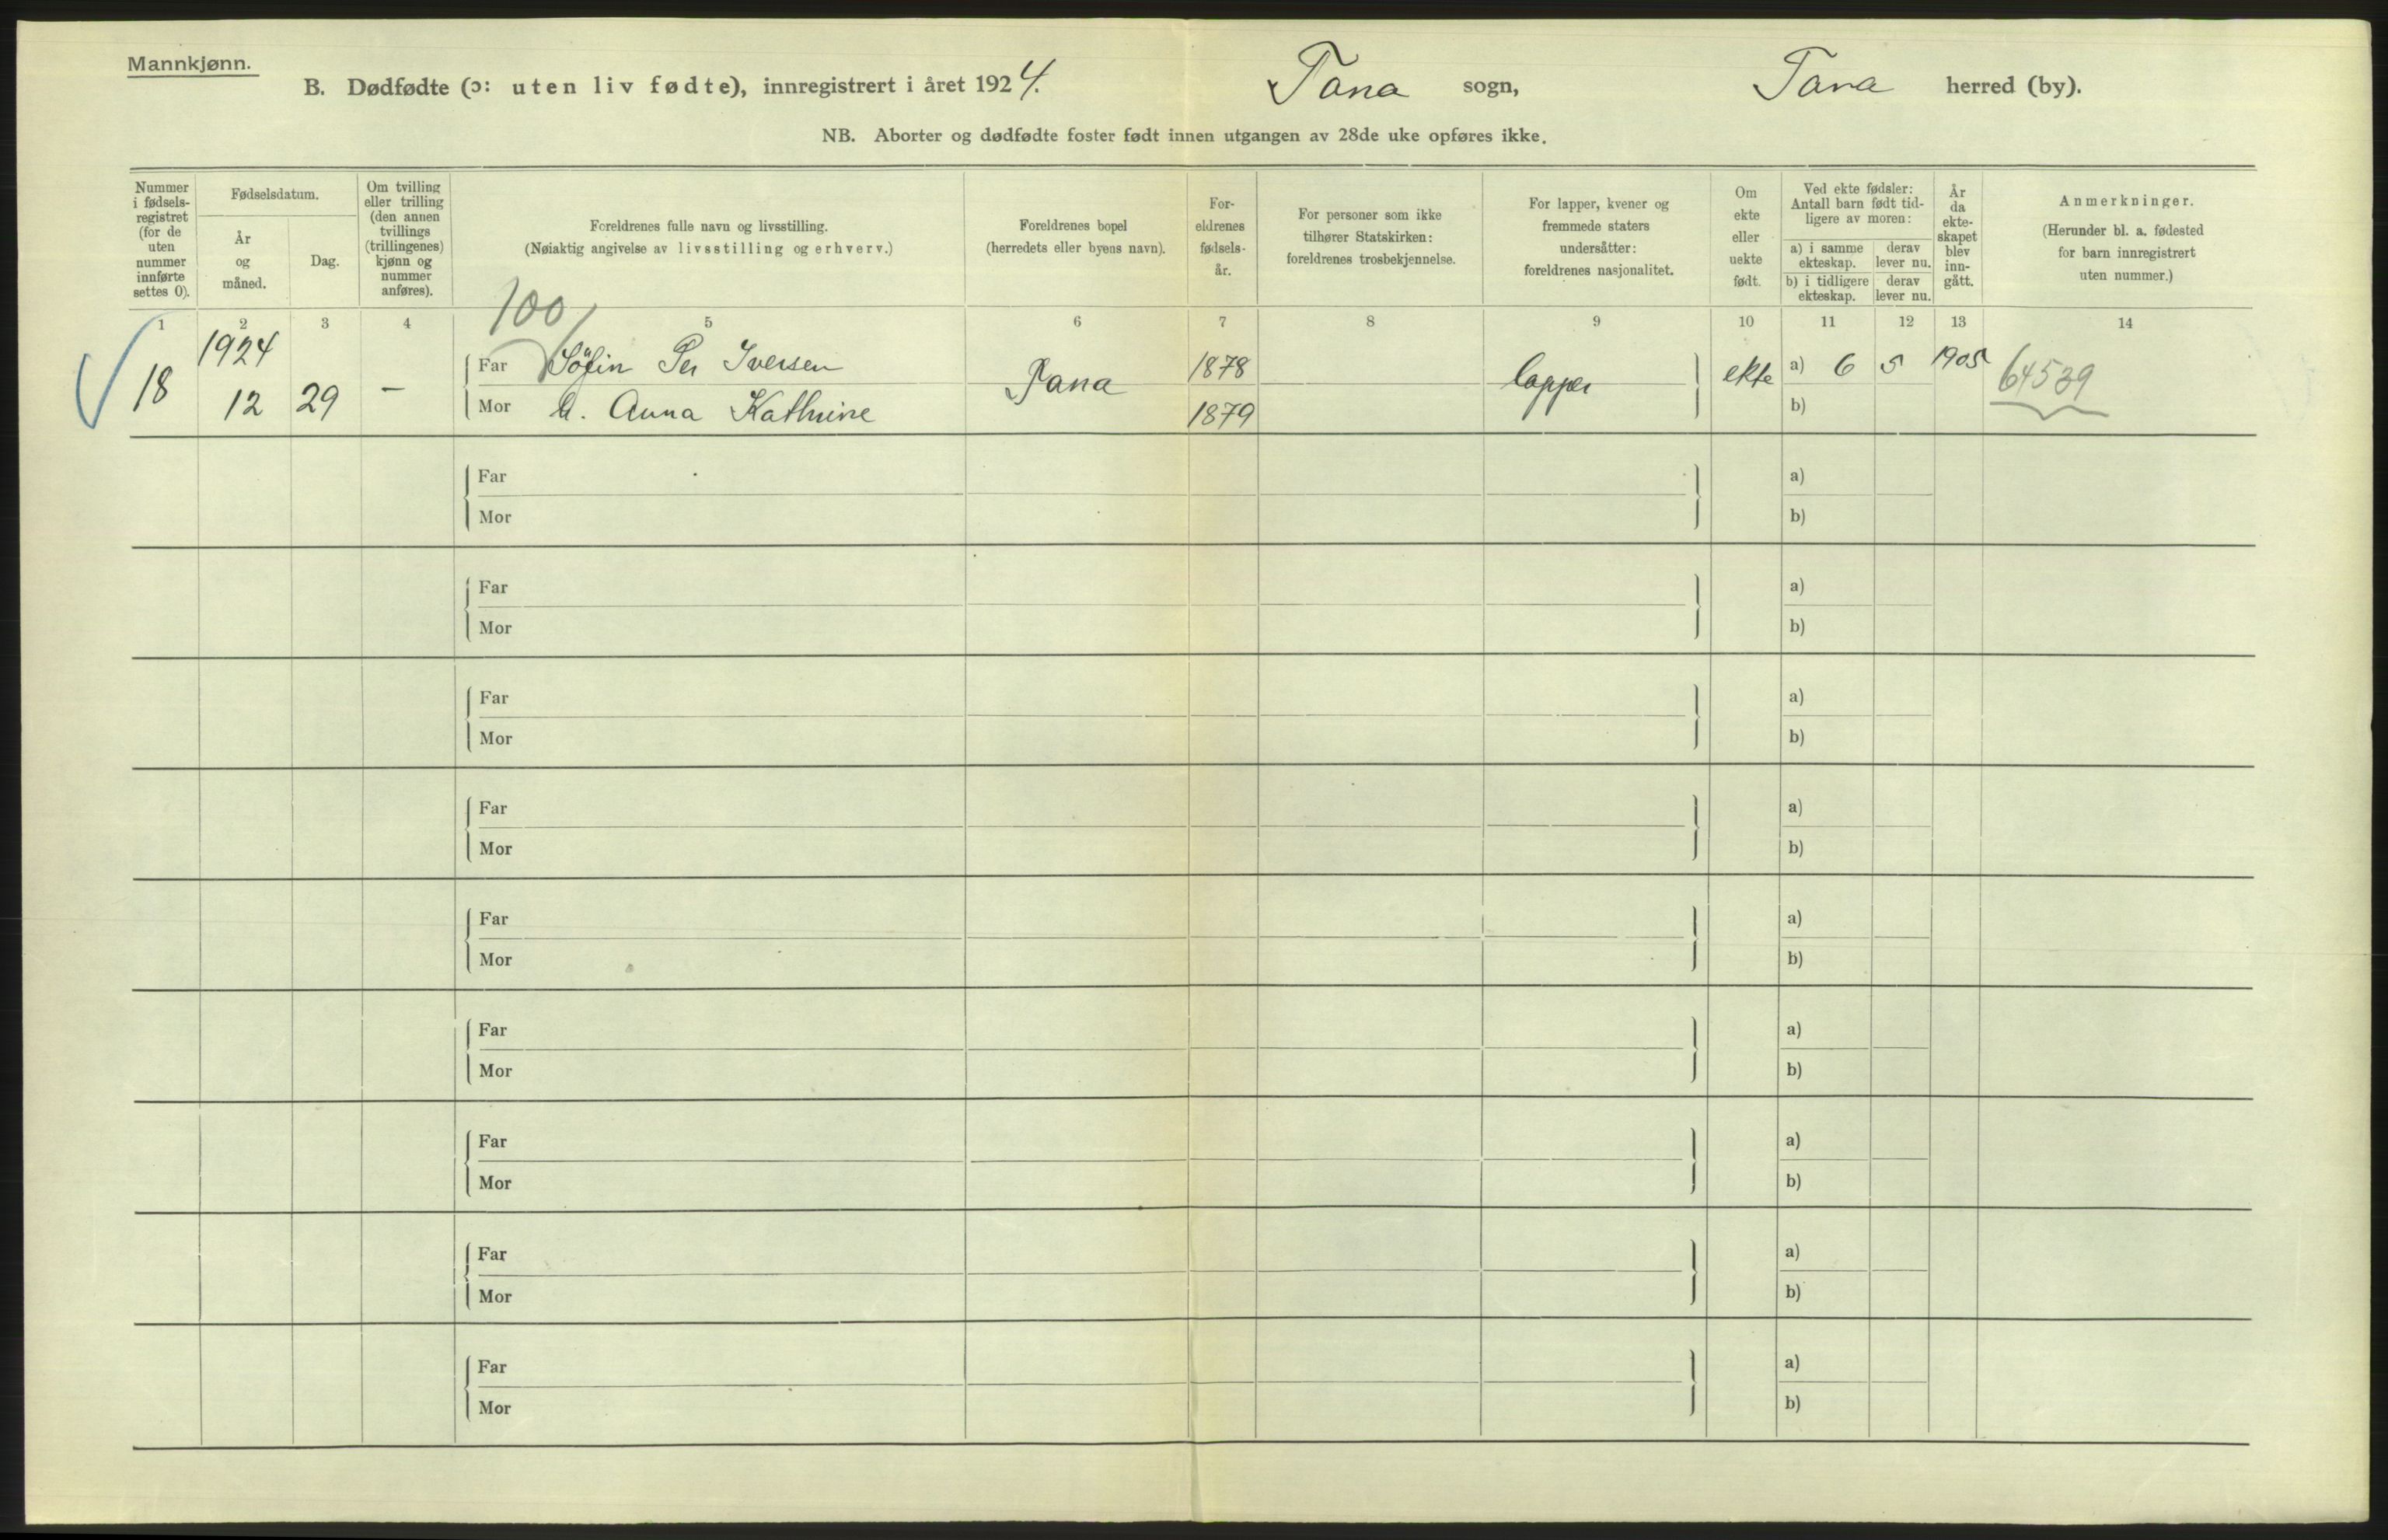 Mannkjønn.
B. Dødfødte (ɔ: uten liv fødte), innregistrert i året 1924. Tana sogn, Tana herred (by).
NB. Aborter og dødfødte foster født innen utgangen av 28de uke opføres ikke.
Nummer i fødsels-registret (for de uten nummer innførte settes 0).
Fødselsdatum.
År og måned.
Dag.
Om tvilling eller trilling (den annen tvillings (trillingenes) kjønn og nummer anføres).
Foreldrenes fulle navn og livsstilling.
(Nøiaktig angivelse av livsstilling og erhverv.)
Foreldrenes bopel
(herredets eller byens navn).
For-eldrenes fødsels-år.
For personer som ikke tilhører Statskirken: foreldrenes trosbekjennelse.
For lapper, kvener og fremmede staters undersåtter: foreldrenes nasjonalitet.
Om ekte eller uekte født.
Ved ekte fødsler: Antall barn født tid-ligere av moren:
a) i samme ekteskap. derav lever nu.
b) i tidligere ekteskap. derav lever nu.
År da ekte-skapet blev inn-gått.
Anmerkninger.
(Herunder bl. a. fødested for barn innregistrert uten nummer.)
100
1 2 3 4 5 6 7 8 9 10 11 12 13 14
1924
Far Iversen 1878 a) 6 5 1905
18 12 29 — Tana lapper ekte 64539
Mor Anna Kathrine 1879 b)
Far a)
Mor b)
Far a)
Mor b)
Far a)
Mor b)
Far a)
Mor b)
Far a)
Mor b)
Far a)
Mor b)
Far a)
Mor b)
Far a)
Mor b)
Far a)
Mor b)